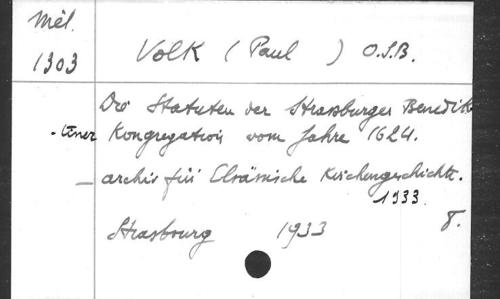 Mél.
1303
Volk (Paul ) O.S.B.
Die Statuten der Strassburger Benedik
-tiner Kongregation vom Jahre 1624.
— archiv für Elsässische Kirchengeschichte.
1933.
Strasbourg 1933 8.